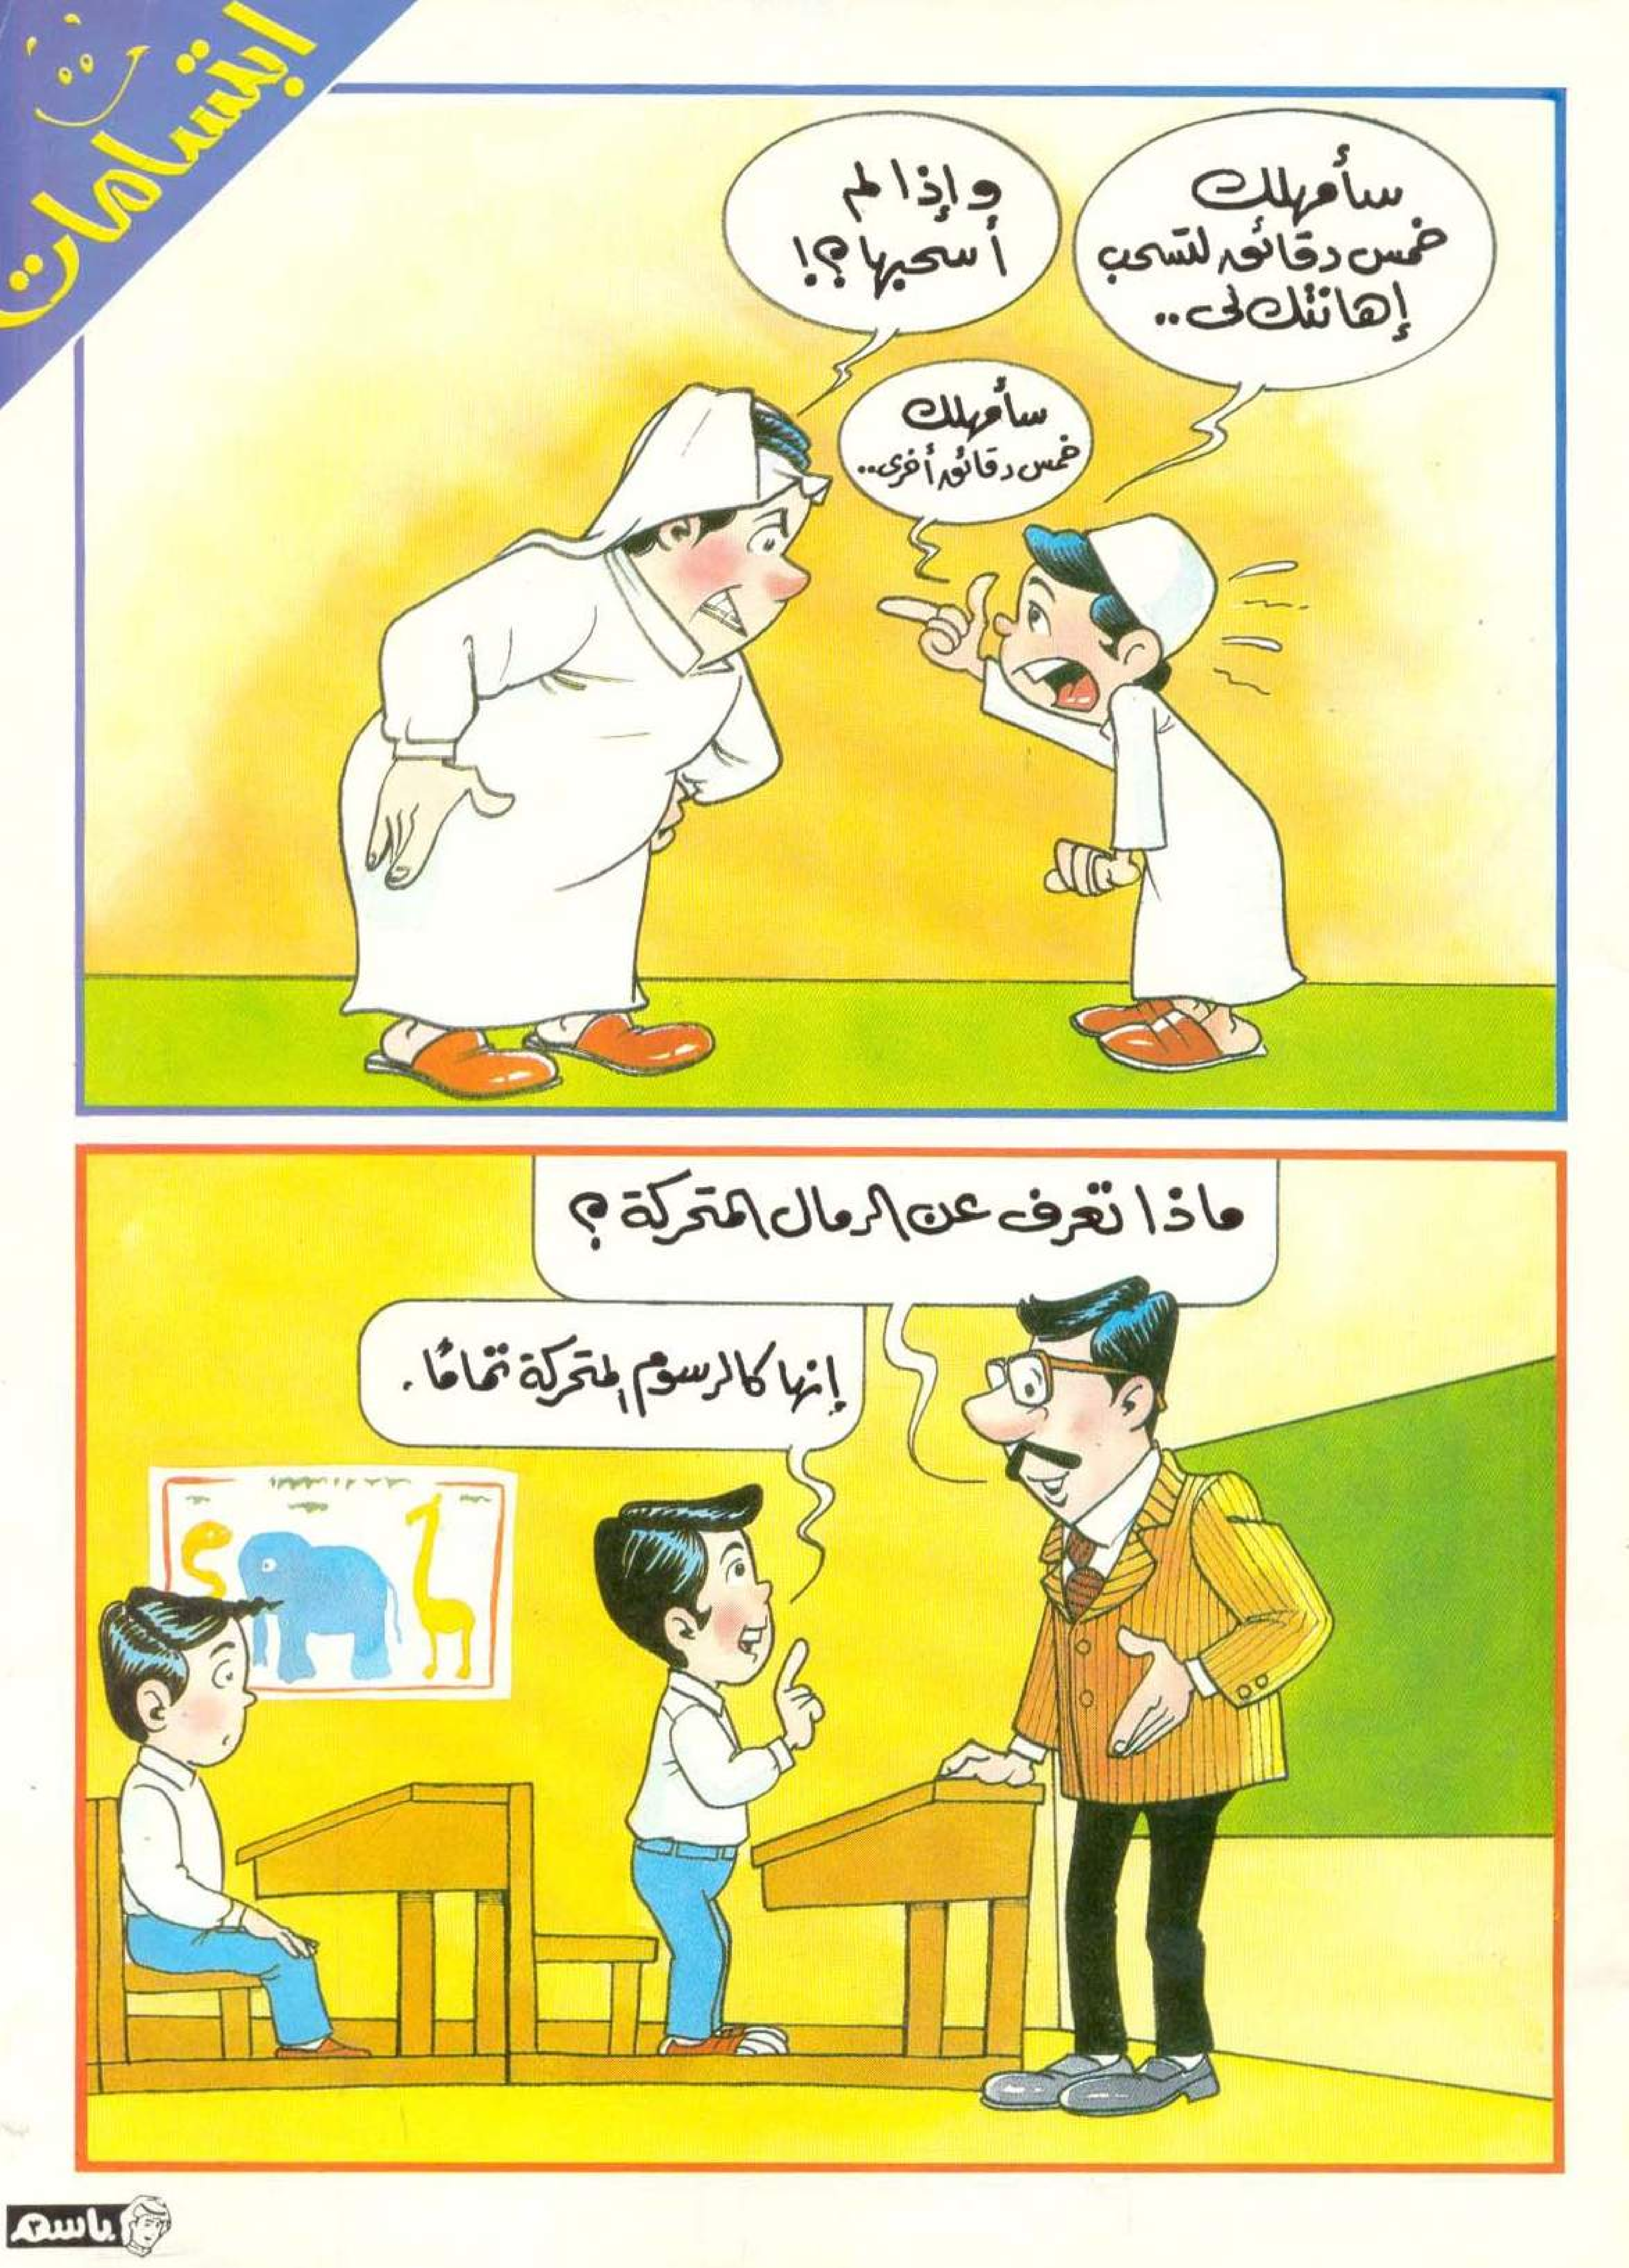 ابتسامات
سأمهلك
خمس دقائق لتسحب
إهانتك لى..
وإذا لم
أسحبها؟!
سأمهلك
خمس دقائق أخرى..
ماذا تعرف عن الرمال المتحركة؟
إنها كالرسوم المتحركة تمامًا.
باسم